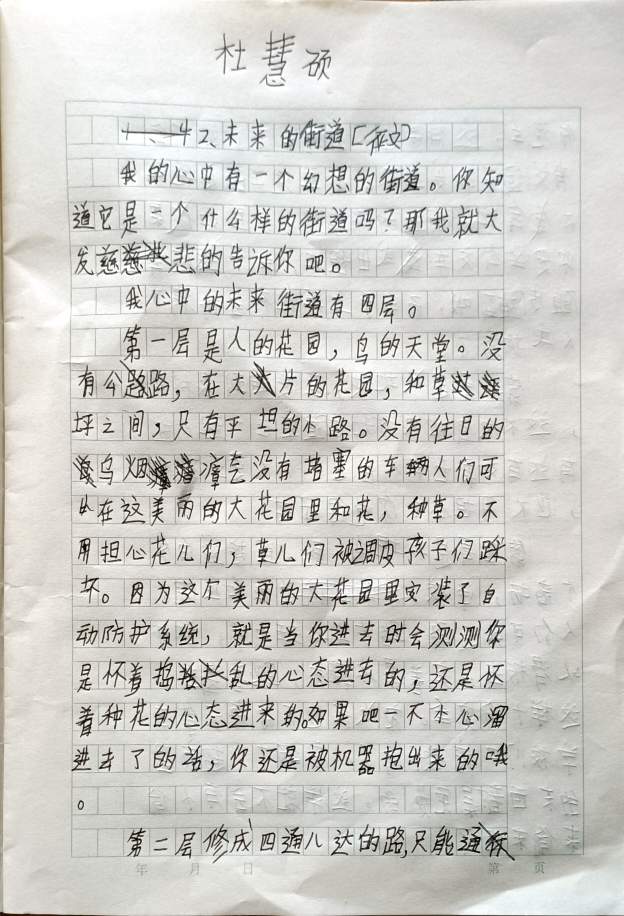 杜慧硕
2、未来的街道[征文]
我的心中有一个幻想的街道。你知
道它是一个什么样的街道吗?那我就大
发慈悲的告诉你吧。
我心中的未来街道有四层。
第一层是人的花园,鸟的天堂。没
有公路,在大片的花园,和草
坪之间,只有平坦的小路。没有往日的
乌烟瘴气没有堵塞的车辆人们可
以在这美丽的大花园里和花,种草。不
用担心花儿们,草儿们被调皮孩子们踩
坏。因为这个美丽的大花园里安装了自
动防护系统,就是当你进去时会测测你
是怀着捣乱的心态进去的,还是怀
着种花的心态进来的。如果吧一不小心溜
进去了的话,你还是被机器抱出来的哦
。
第二层修成四通八达的路,只能通
年 月 日 第 页